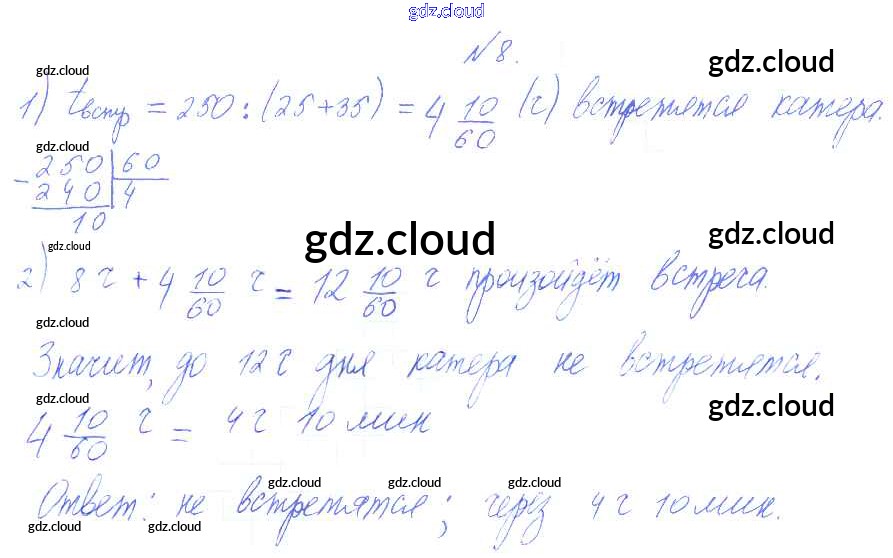 gdz.cloud
№8.
gdz.cloud
gdz.cloud
1) tвстр = 250 : (25+35) = 4 10/60 (ч) встретятся катера.
gdz.cloud
gdz.cloud
- 250 | 60
240 | 4
10
gdz.cloud
gdz.cloud
gdz.cloud
2) 8 ч + 4 10/60 ч = 12 10/60 ч произойдёт встреча.
gdz.cloud
Значит, до 12 ч дня катера не встретятся.
gdz.cloud
gdz.cloud
4 10/60 ч = 4 ч 10 мин
gdz.cloud
gdz.cloud
gdz.cloud
Ответ: не встретятся; через 4 ч 10 мин.
gdz.cloud
gdz.cloud
gdz.cloud
gdz.cloud